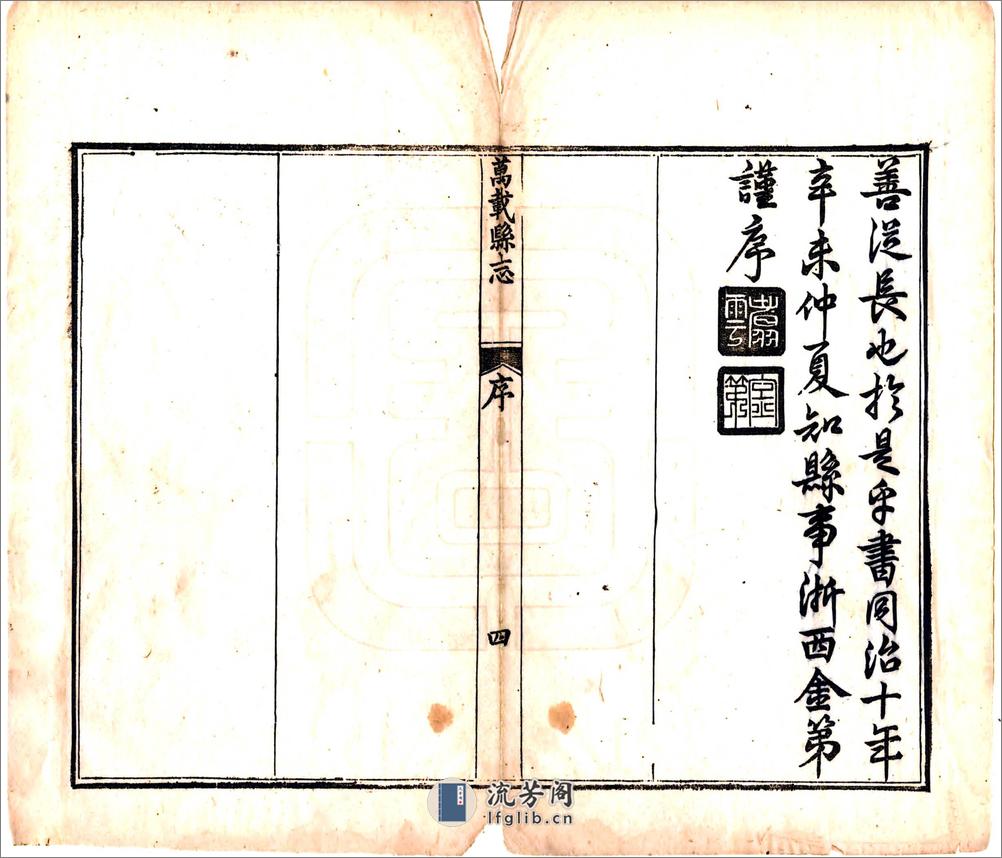 善從長也於是乎書同治十年
辛未仲夏知縣事浙西金第
謹序
萬載縣志
序
四
流芳阁
lfglib.cn